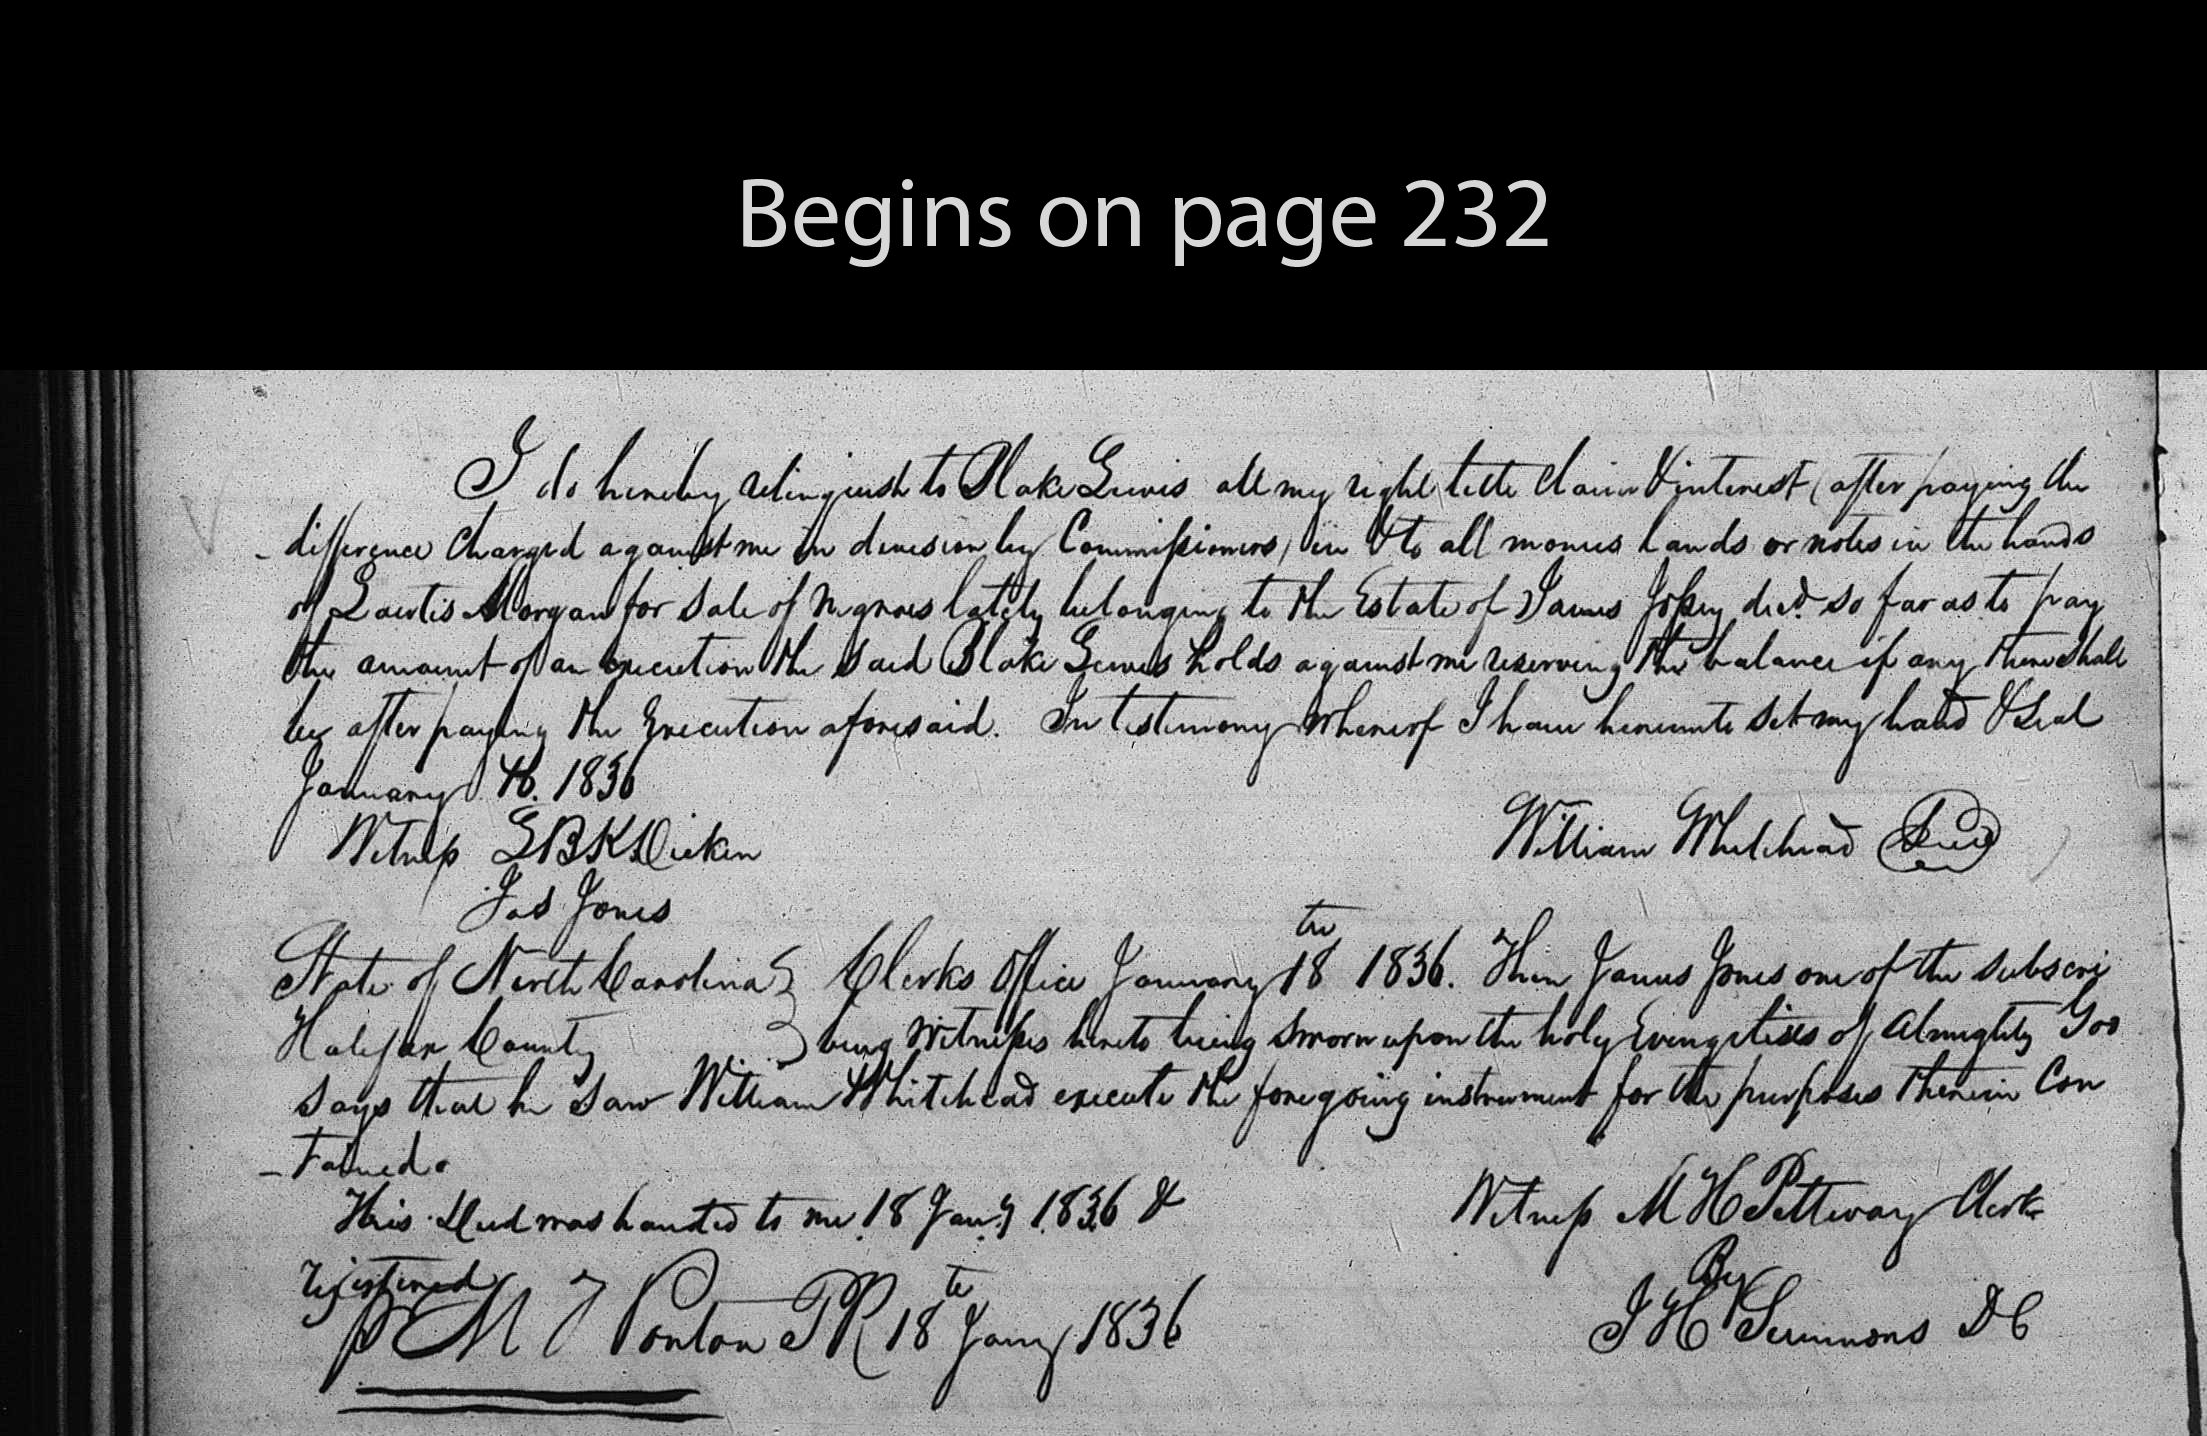 Begins on page 232
I do hereby relinquish to Blake Lewis all my right title claim & interest (after paying the
- difference charged against me in division by Commissioners) in & to all monies hands or notes in the hands
of Morgan for sale of negroes lately belonging to the Estate of James Josey decd. so far as to pay
the amount of an execution the said Blake Lewis holds against me reserving the balance if any there shall
be after paying the Execution aforesaid. In testimony whereof I have hereunto set my hand & seal
January 1836
Witness L B K Dicken
William Whitehead Seal
Jas Jones
State of North Carolina Clerks Office January 18th 1836. Then James Jones one of the subscri
Halifax County bing witnesses hereto being sworn upon the holy of Almighty God
says that he saw William Whitehead execute the foregoing instrument for the purposes therein Con
- tained.
This Deed was handed to me 18 Jany 1836 &
Witness M H Pettway Clerk
registered
By
pr M T Ponton PR 18th Jany 1836
J H Simmons DC